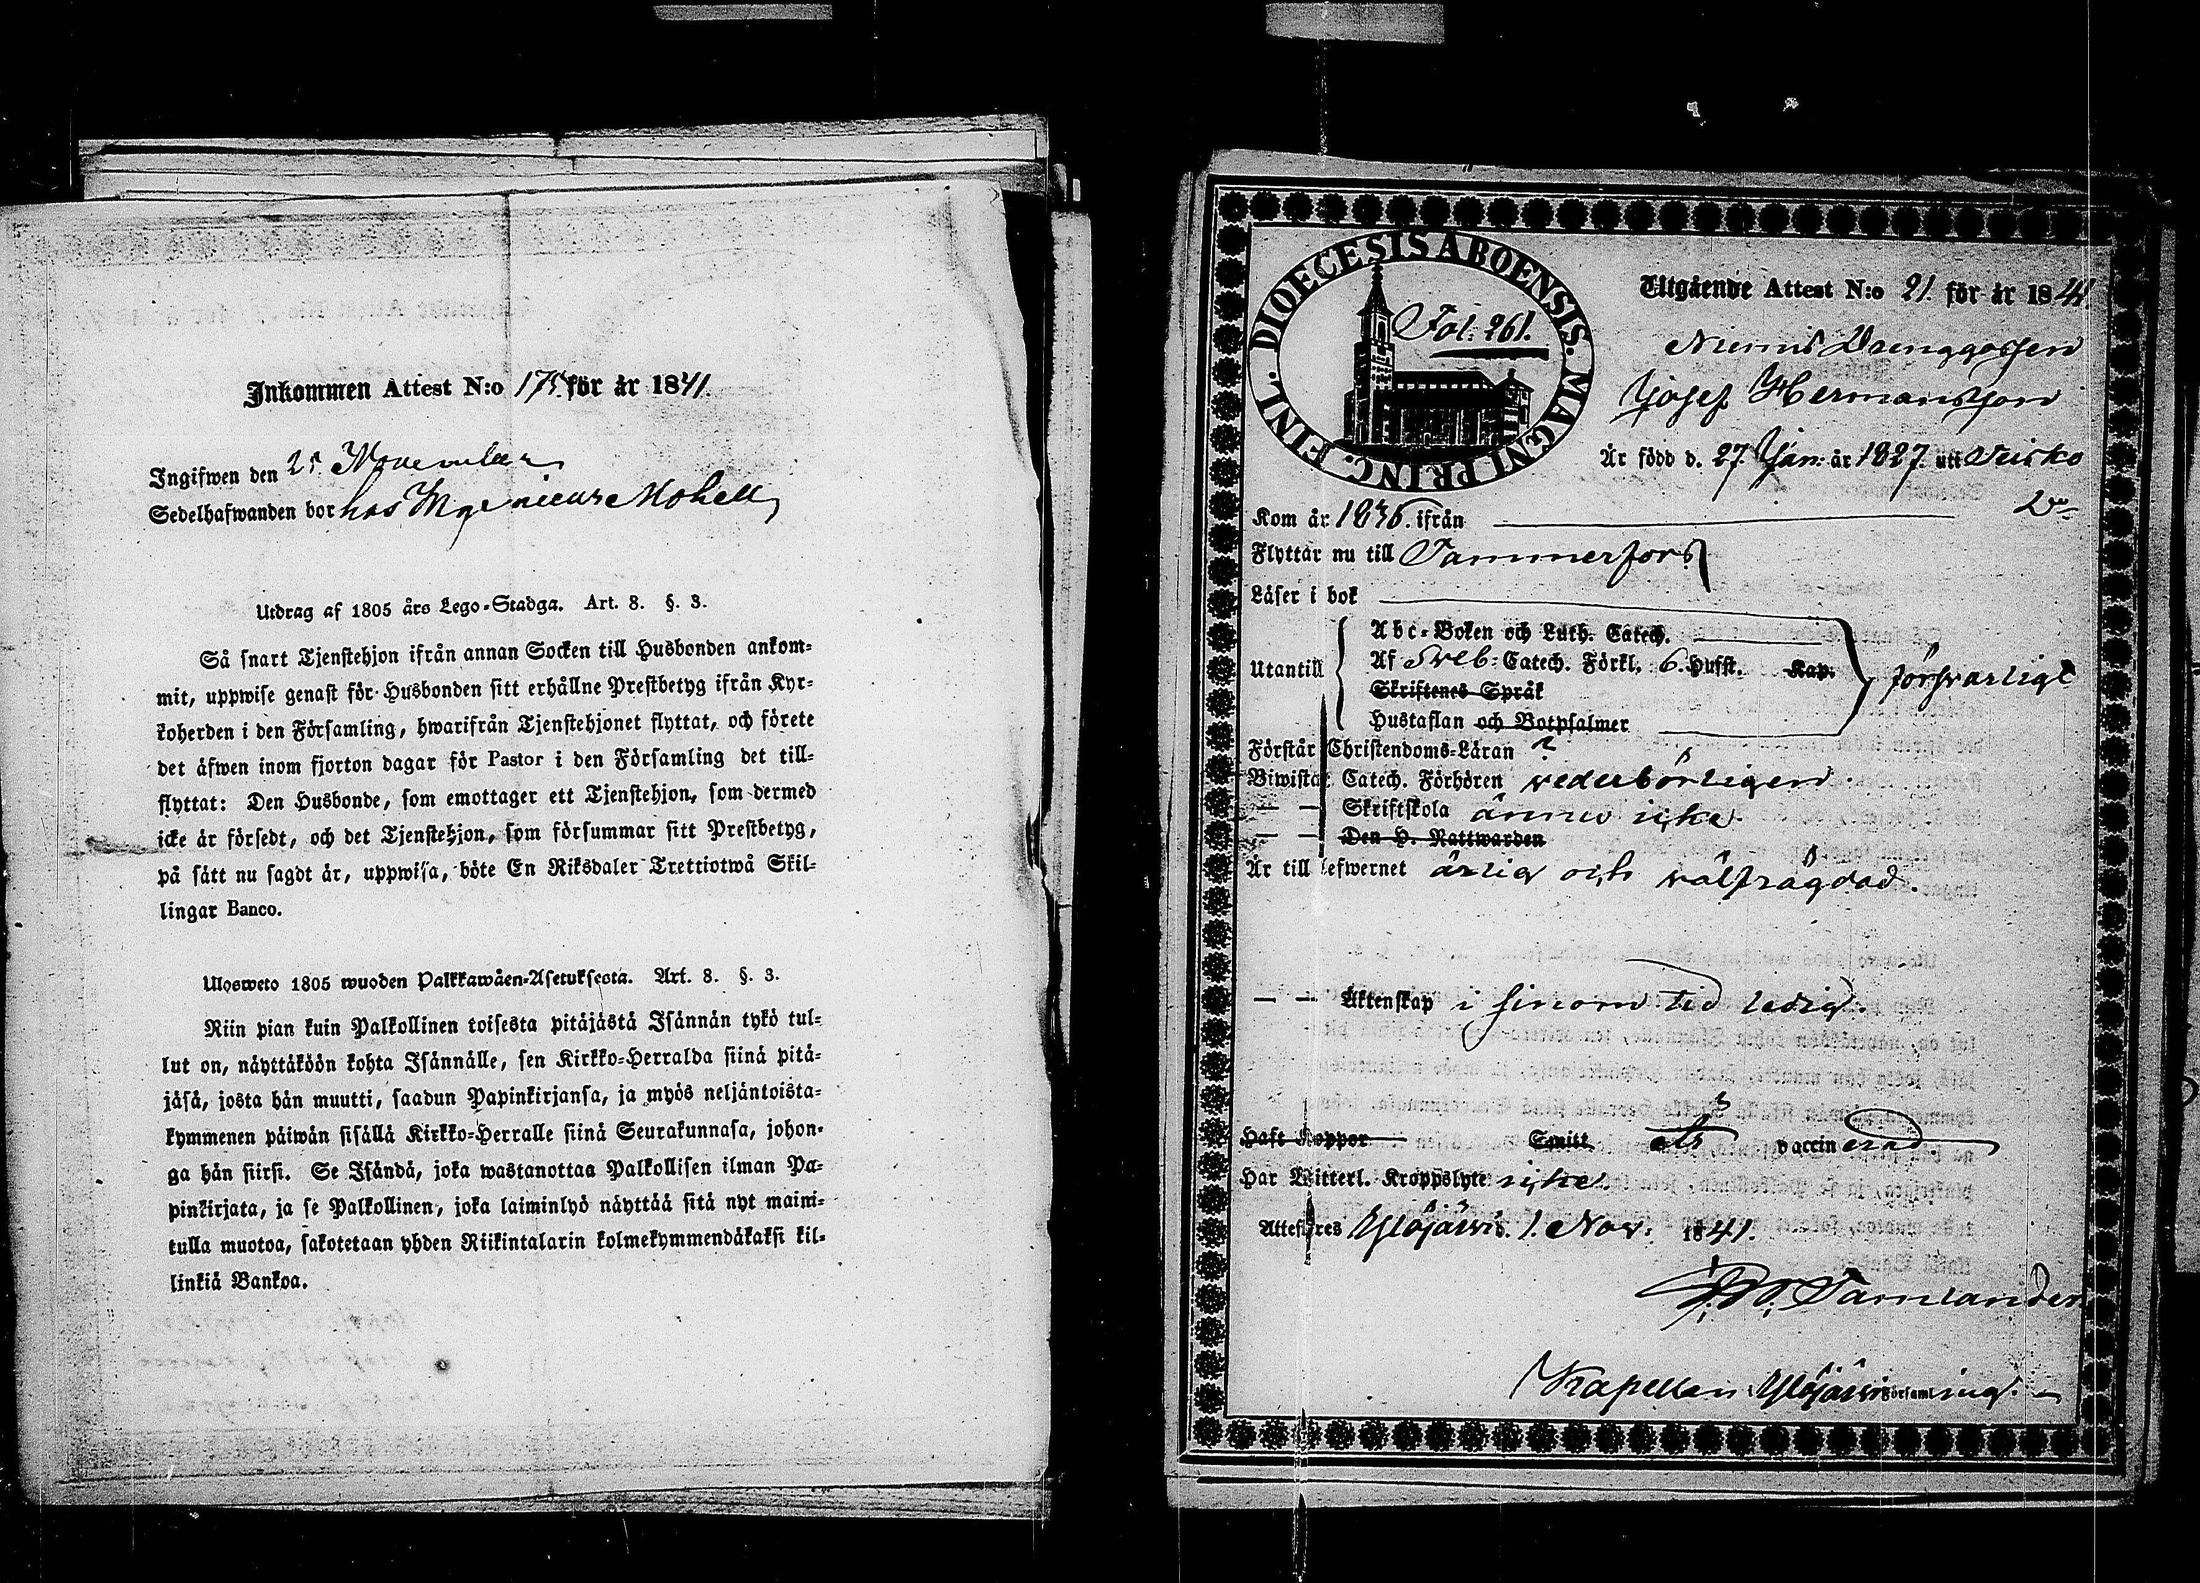 Inkommen Attest N:o 175 för år 1841.
Ingifwen den 25 November
Sedelhafwanden bor hos Ingenieur
Utdrag af 1805 års Lego-Stadga. Art. 8. §. 3.
Så snart Tjenstehjon ifrån annan Socken till Husbonden ankom-
mit, uppwise genast för Husbonden sitt erhållne Prestbetyg ifrån Kyr-
koherden i den Församling, hwarifrån Tjenstehjonet flyttat, och förete
det äfwen inom fjorton dagar för Pastor i den Församling det till-
flyttat: Den Husbonde, som emottager ett Tjenstehjon, som dermed
icke är försedt, och det Tjenstehjon, som försummar sitt Prestbetyg,
på sätt nu sagdt är, uppwisa, böte En Riksdaler Trettiotwå Skil-
lingar Banco.
Ulosweto 1805 wuoden Palkkawäen-Asetuksesta. Art. 8. §. 3.
Niin pian kuin Palkollinen toisesta pitäjästä Isännän tykö tul-
lut on, näyttäköön kohta Isännälle, sen Kirkko-Herralda siinä pitä-
jäsä, josta hän muutti, saadun Papinkirjansa, ja myös neljäntoista-
kymmenen päiwän sisällä Kirkko-Herralle siinä Seurakunnasa, johon-
ga hän siirsi. Se Isändä, joka wastanottaa Palkollisen ilman Pa-
pinkirjata, ja se Palkollinen, joka laiminlyö näyttää sitä nyt maini-
tulla muotoa, sakotetaan yhden Riikintalarin kolmekymmendäkaksi kil-
linkiä Bankoa.
DIOECESIS ABOENSIS. MAGNI PRINC. FINL.
Fol. 261.
Utgående Attest N:o 21. för år 1841
Drenggossen
Josef Hermansson
Är född d. 27. Jan: år 1827. utt
Kom år 1836. ifrån
Flyttar nu till Tammerfors
Läser i bok
Utantill
Abc-Boken och Luth. Catech.
Af Sveb: Catech. Förkl. 6. Hufst. Kap.
Skriftenes Språk
Hustaflan och Botpsalmer
försvarligt
Förstår Christendoms-Läran ?
Biwistat Catech. Förhören vederbörligen.
— — Skriftskola ännu icke
— — Den H. Nattwarden
Är till lefwernet ärlig och välfrägdad.
— — Äktenskap i sinom tid ledig.
Haft Koppor Smitt ? vaccinerad
Har Witterl. Kroppslyte icke
Attesteres Ylöjärvi. 1. Nov: 1841.
Tamlander
Kapellan i Ylöjärvi Församling.